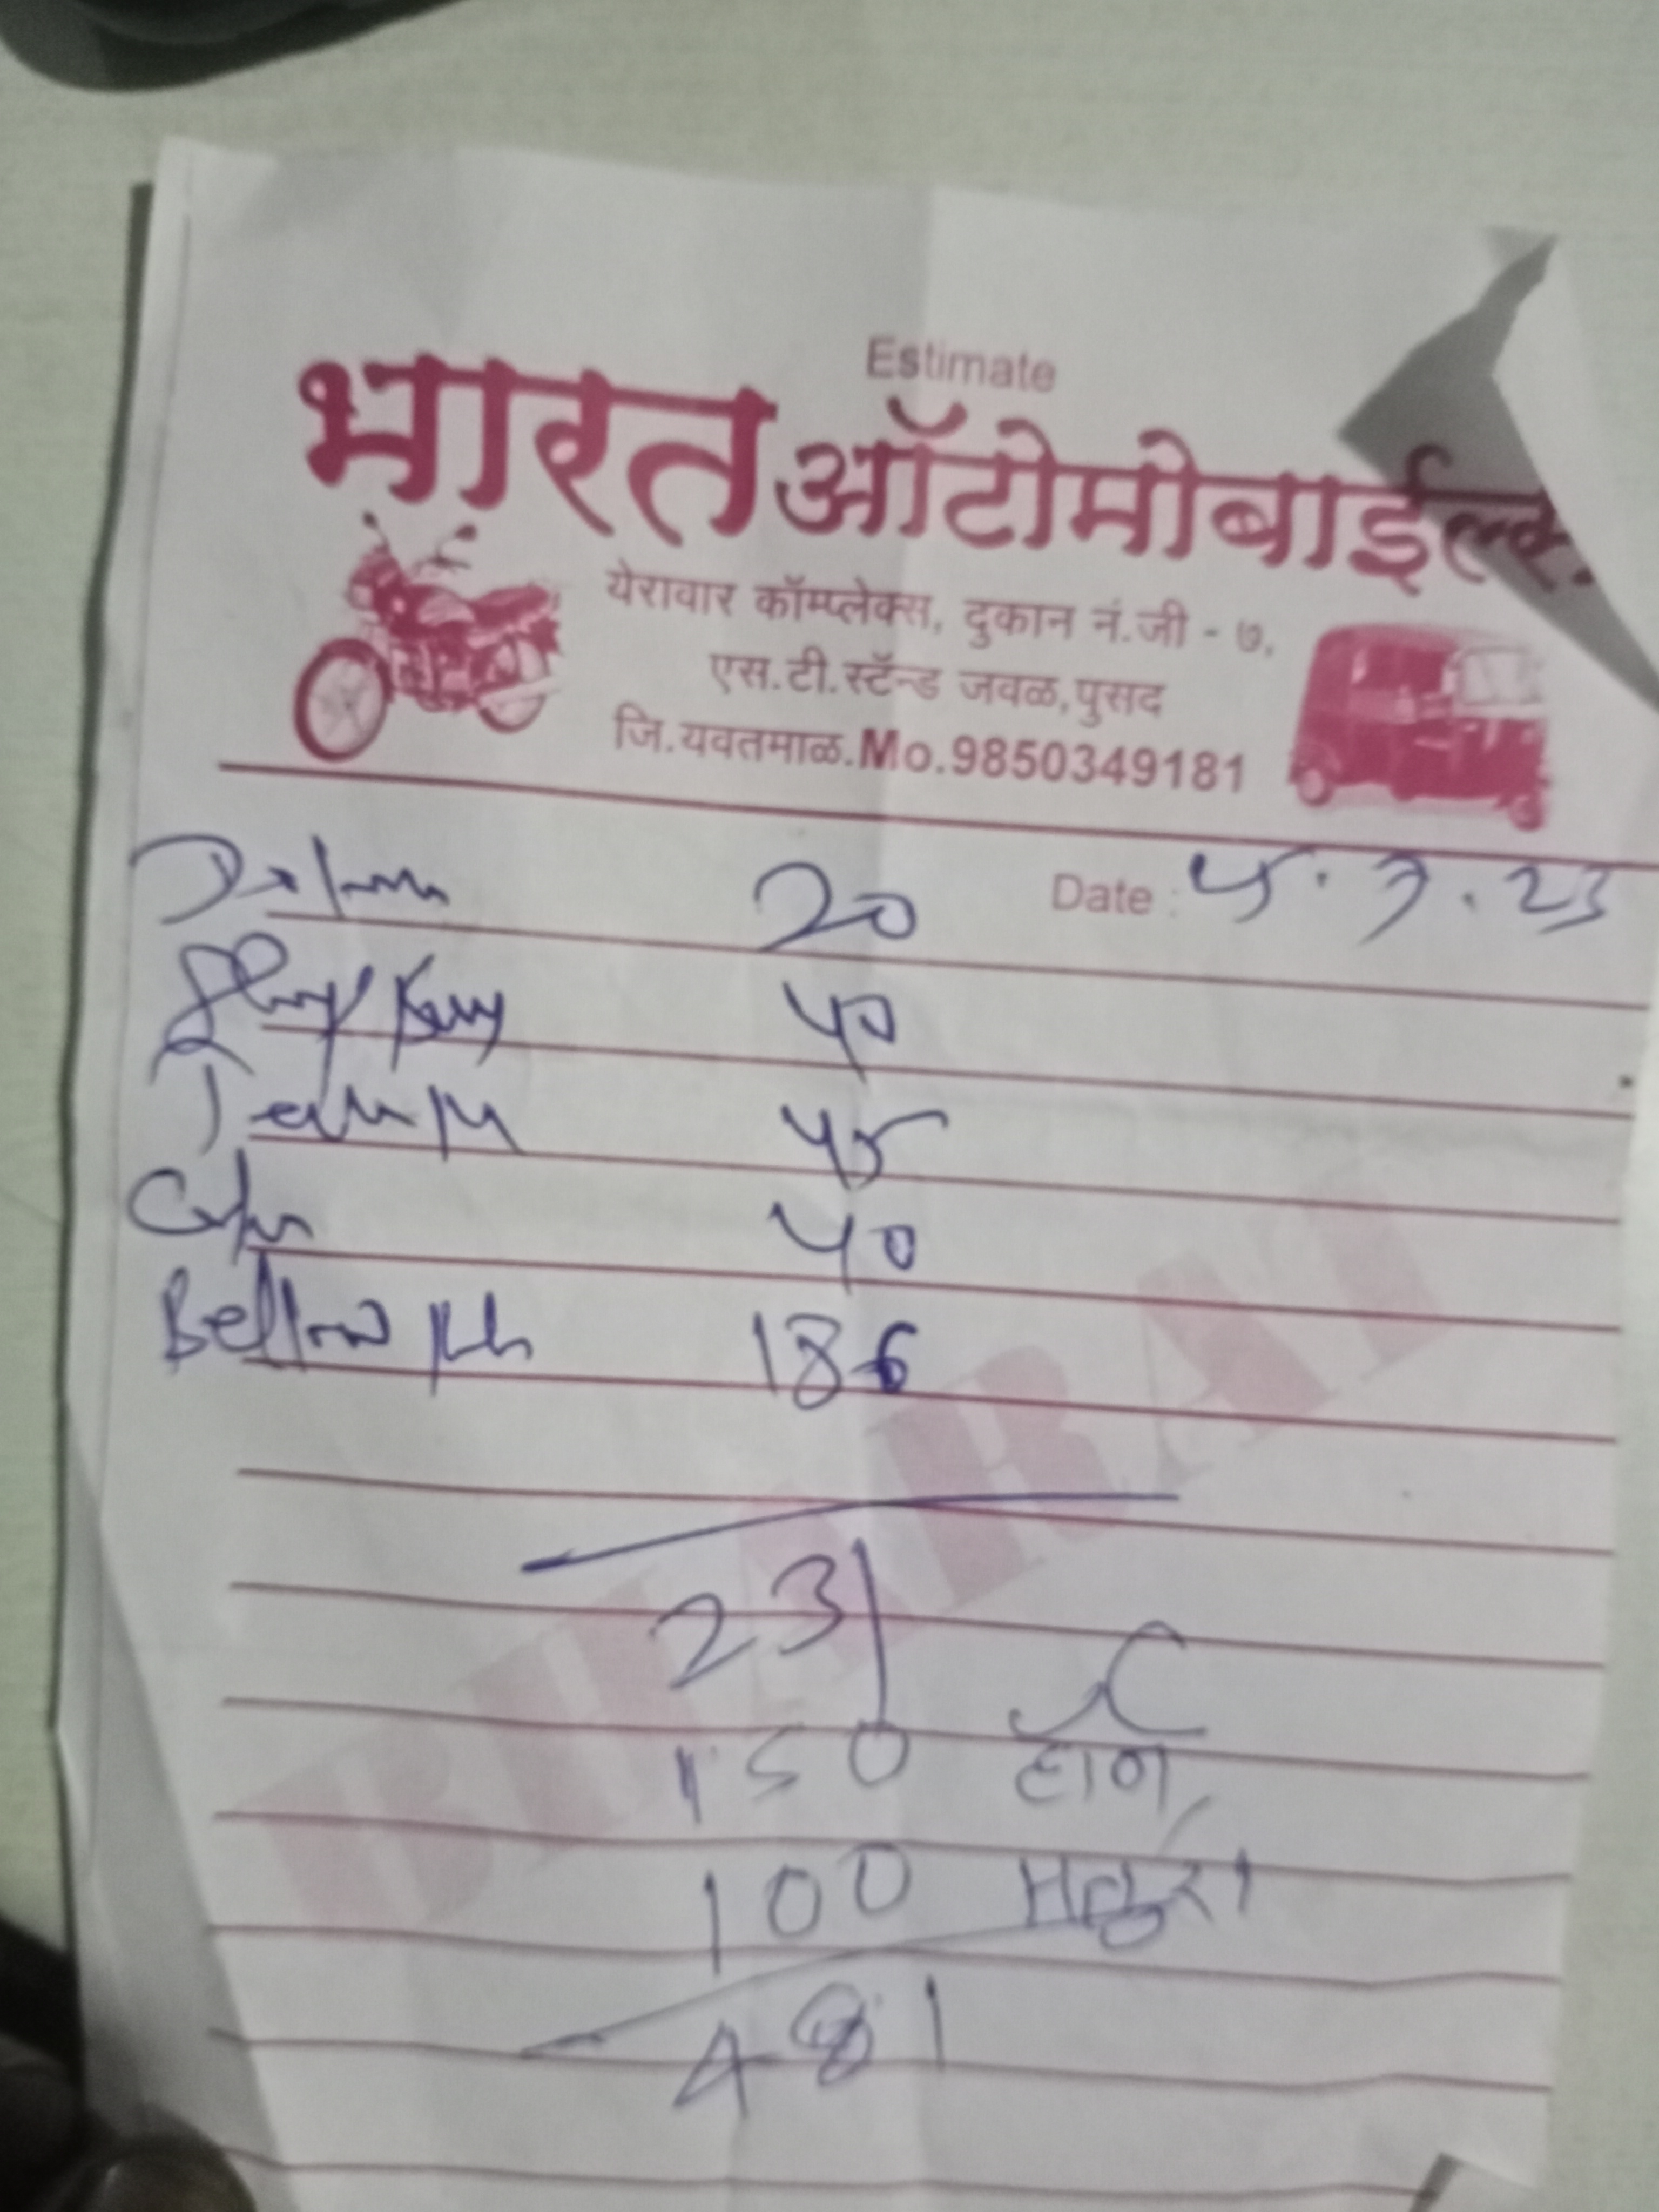 Estimate
भारत ऑटोमोबाईल्स.
येरावार कॉम्प्लेक्स, दुकान नं.जी - ७,
एस.टी.स्टॅन्ड जवळ,पुसद
जि.यवतमाळ.Mo.9850349181
Date : ५.7.23
20
40
45
40
186
231
150 हॉर्न
100 मजुरी
481
BHARAT